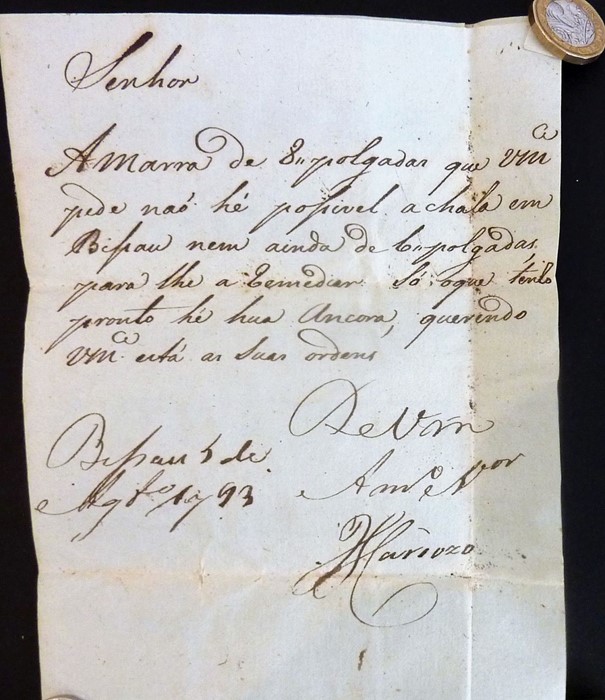 Senhor
A Marra de 8,, polgadas que Vmce
pede naó hé posivel achala em
Bissau nem ainda de 6,, polgadas,
para lhe a Remediar Só oque tenho
pronto hé hua Ancora, querendo
Vmce está as Suas ordens
De Vm
Bissau 5 de Amo e Vor
Agto 1793